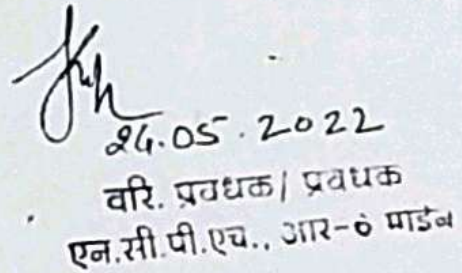 24.05.2022
वरि. प्रवधक/ प्रवधक
एन.सी.पी.एच., आर-6 माईन